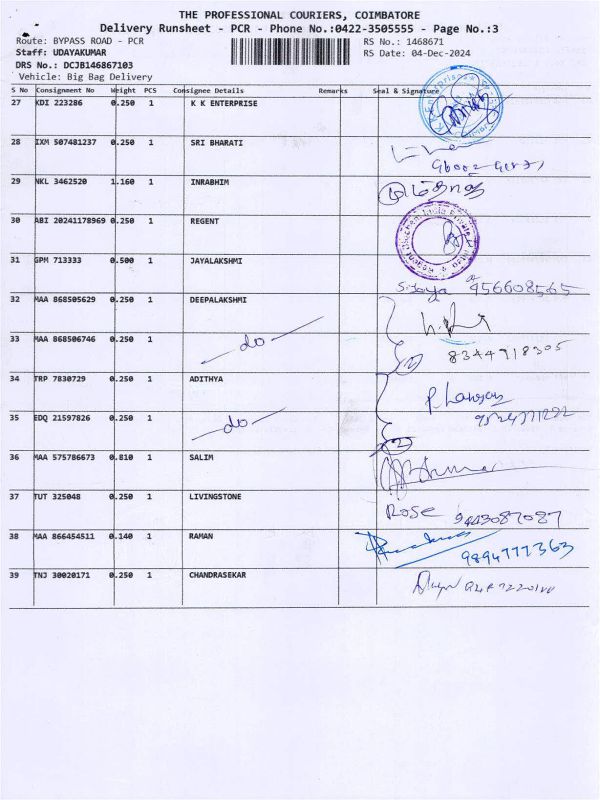 THE PROFESSIONAL COURIERS, COIMBATORE
Delivery Runsheet - PCR - Phone No.:0422-3505555 - Page No.:3
Route: BYPASS ROAD - PCR RS No.: 1468671
Staff: UDAYAKUMAR RS Date: 04-Dec-2024
DRS No.: DCJB146867103
Vehicle: Big Bag Delivery
S No Consignment No Weight PCS Consignee Details Remarks Seal & Signature
27 KDI 223286 0.250 1 K K ENTERPRISE
28 IXM 507481237 0.250 1 SRI BHARATI
29 NKL 3462520 1.160 1 INRABHIM
30 ABI 20241178969 0.250 1 REGENT
31 GPM 713333 0.500 1 JAYALAKSHMI
S.Jaya 956608565
32 MAA 868505629 0.250 1 DEEPALAKSHMI
33 MAA 868506746 0.250 1 do 2
8344718305
34 TRP 7830729 0.250 1 ADITHYA
35 EDQ 21597826 0.250 1 do 2
36 MAA 575786673 0.810 1 SALIM
37 TUT 325048 0.250 1 LIVINGSTONE
Rose 9443087087
38 MAA 866454511 0.140 1 RAMAN
9894777363
39 TNJ 30020171 0.250 1 CHANDRASEKAR